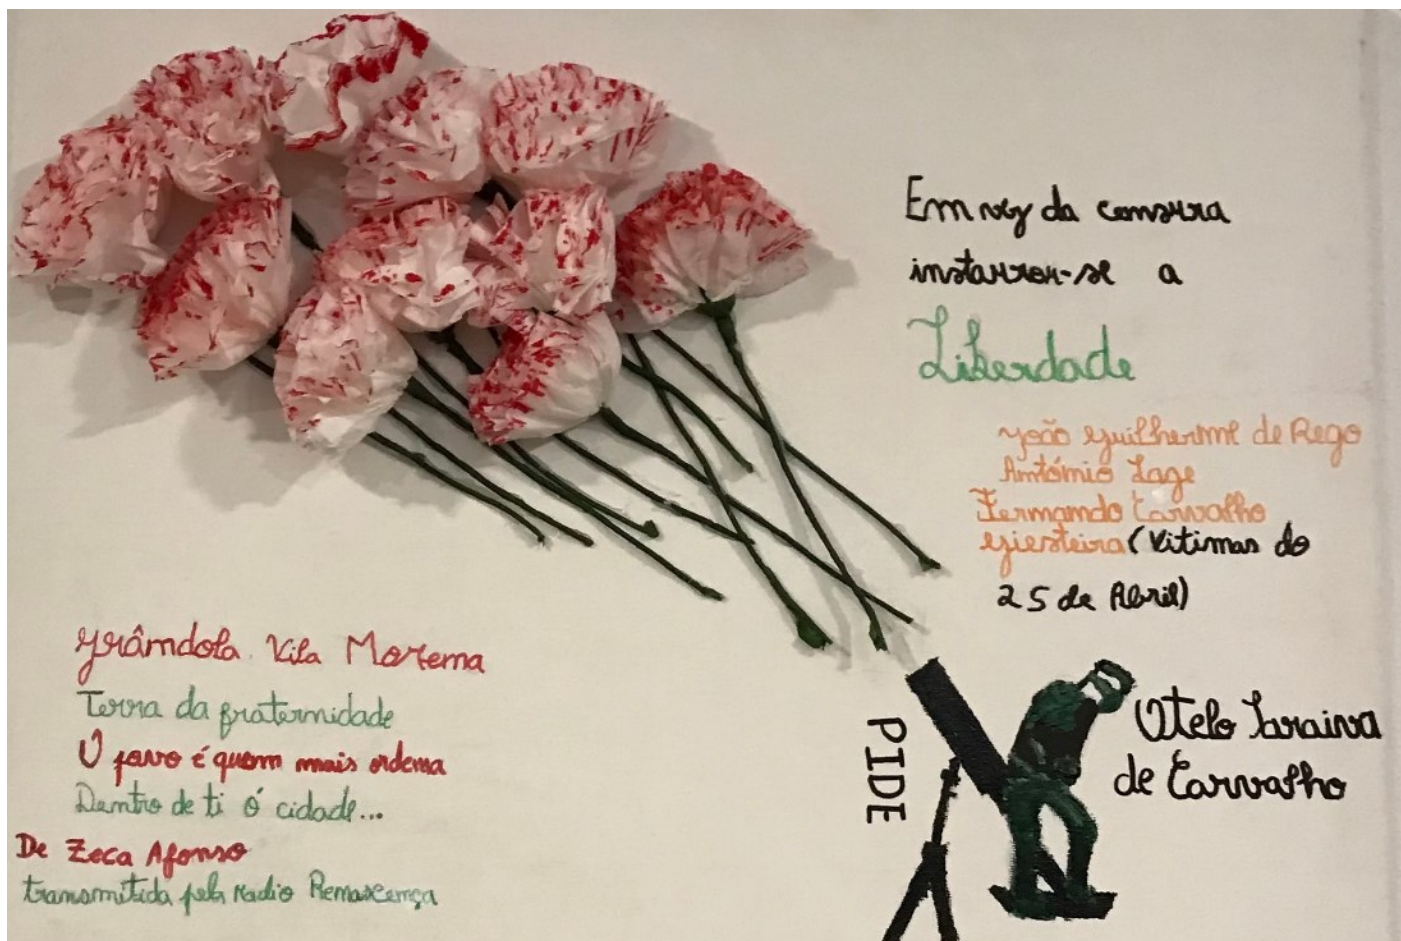 Em vez da censura
instaurou-se a
Liberdade
João Guilherme de Rego
António Lage
Fernando Carvalho
Giesteira (Vitimas do
25 de Abril)
Grândola Vila Morena
Terra da fraternidade
O povo é quem mais ordena
Dentro de ti ó cidade...
De Zeca Afonso
transmitida pela Radio Renascença
PIDE
Otelo Saraiva
de Carvalho